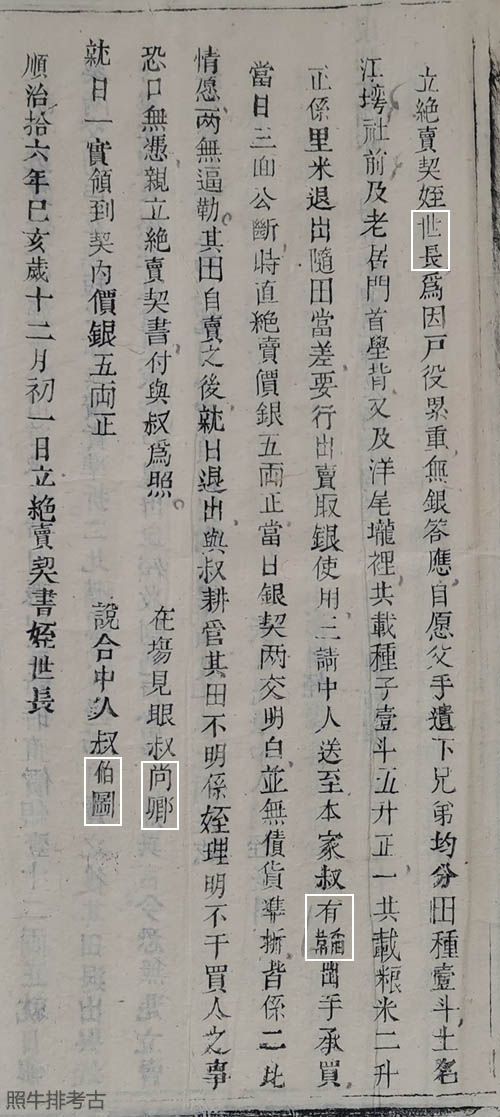 立絶賣契姪世長爲因戸役累重無銀答應自愿父手遺下兄弟均分田種壹斗土名
江塆社前及老居門首壆背又及洋尾壠裡共載種子壹斗五升正一共載粮米二升
正係里米退出隨田當差要行出賣取銀使用二請中人送至本家叔有出手承買
當日三面公斷時直絶賣價銀五両正當日銀契両交明白並無債貨準折皆係二比
情愿両無逼勒其田自賣之後就日退出與叔耕管其田不明係姪理明不干買人之事
恐口無憑親立絶賣契書付與叔爲照 在場見眼叔尚卿
就日一實領到契内價銀五両正 說合中人叔伯圖
順治拾六年巳亥歲十二月初一日立絶賣契書姪世長
照牛排考古